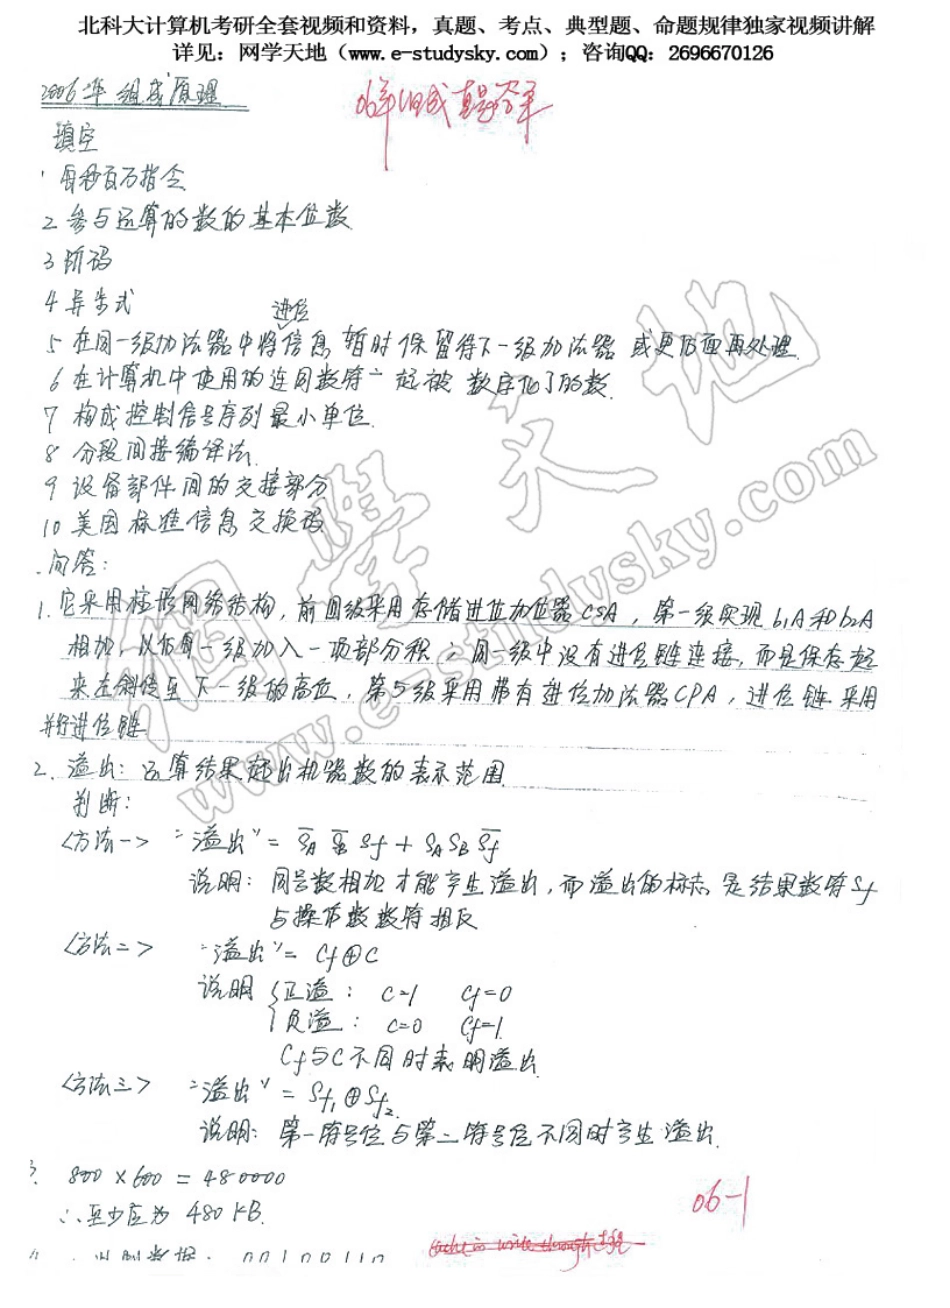 北科大计算机考研全套视频和资料，真题、考点、典型题、命题规律独家视频讲解
详见：网学天地（www.e-studysky.com）；咨询QQ：2696670126
2006年 组成原理
06年组成真题答案
填空
1 每秒百万指令
2 参与运算的数的基本位数
3 阶码
4 异步式
进位
5 在同一级加法器中将信息 暂时保留待下一级加法器 或更后面再处理
6 在计算机中使用的连同数符一起被 数字化了的数
7 构成控制信号序列最小单位
8 分段间接编译法
9 设备部件间的交接部分
10 美国标准信息交换码
问答：
1. 它采用 网络结构，前四级采用存储进位加位器CSA，第一级实现b₁A和b₂A
相加，以后每一级加入一项部分积，同一级中没有进位链连接，而是保存起
来左斜传至下一级的高位，第5级采用带有进位加法器CPA，进位链采用
并行进位链
2. 溢出：运算结果超出机器数的表示范围
判断：
<方法一> "溢出" = S̄A S̄B Sf + SA SB S̄f
说明：同号数相加才能产生溢出，而溢出的标志是结果数符Sf
与操作数数符相反
<方法二> "溢出" = Cf⊕C
说明 { 正溢： C=1 Cf=0
负溢： C=0 Cf=1
Cf与C不同时表明溢出
<方法三> "溢出" = Sf₁⊕Sf₂
说明：第一符号位与第二符号位不同时产生溢出
3. 800×600=480000
∴至少应为 480KB
06-1
網學天地
www.e-studysky.com